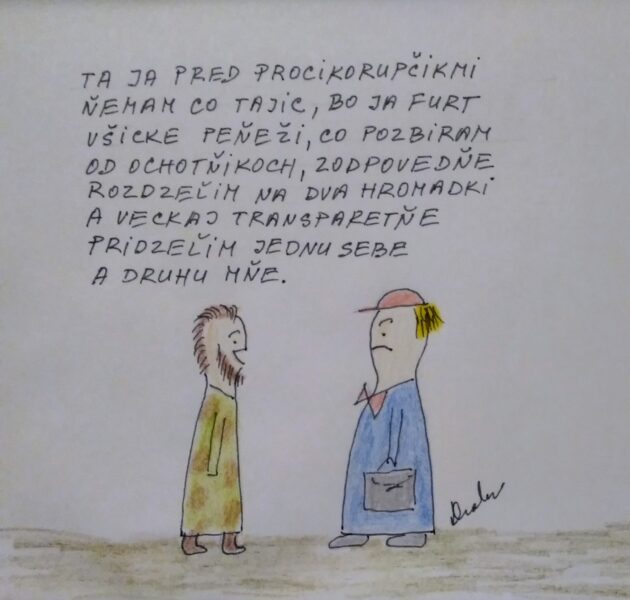 TA JA PRED PROCIKORUPČIKMI
ŇEMAM CO TAJIC, BO JA FURT
VŠICKE PEŇEŽI, CO POZBIRAM
OD OCHOTŇIKOCH, ZODPOVEDŇE
ROZDZEĽIM NA DVA HROMADKI
A VECKAJ TRANSPARETŇE
PRIDZEĽIM JEDNU SEBE
A DRUHU MŇE.